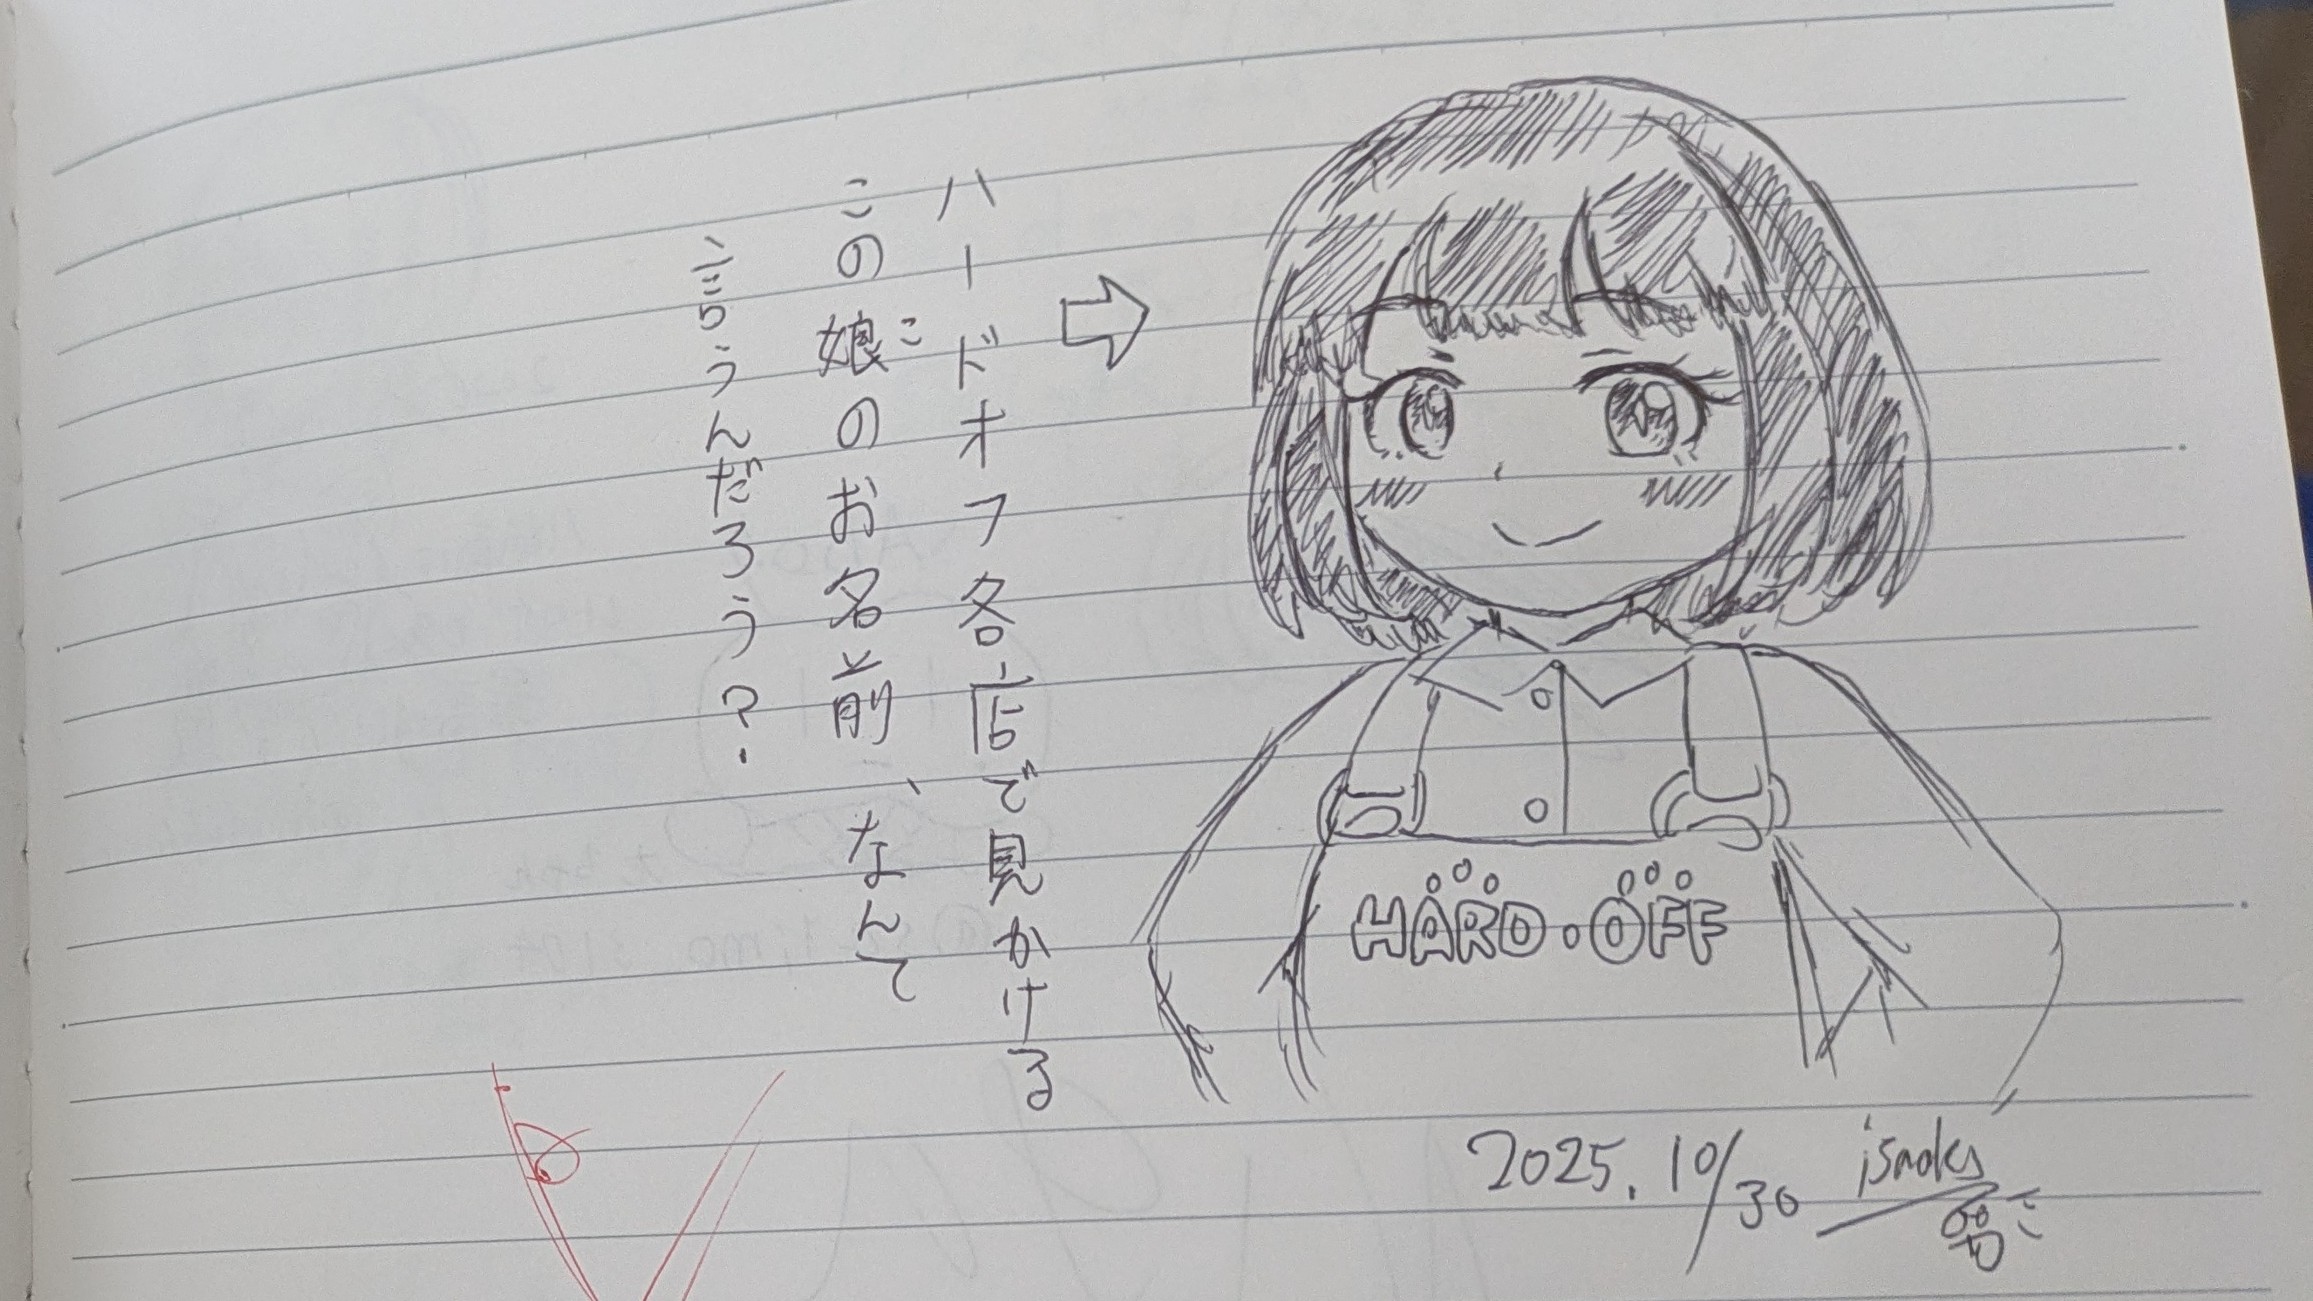 ハードオフ各店で見かける
この娘のお名前、なんて
こ
言うんだろう？
HARD・OFF
2025.10/30